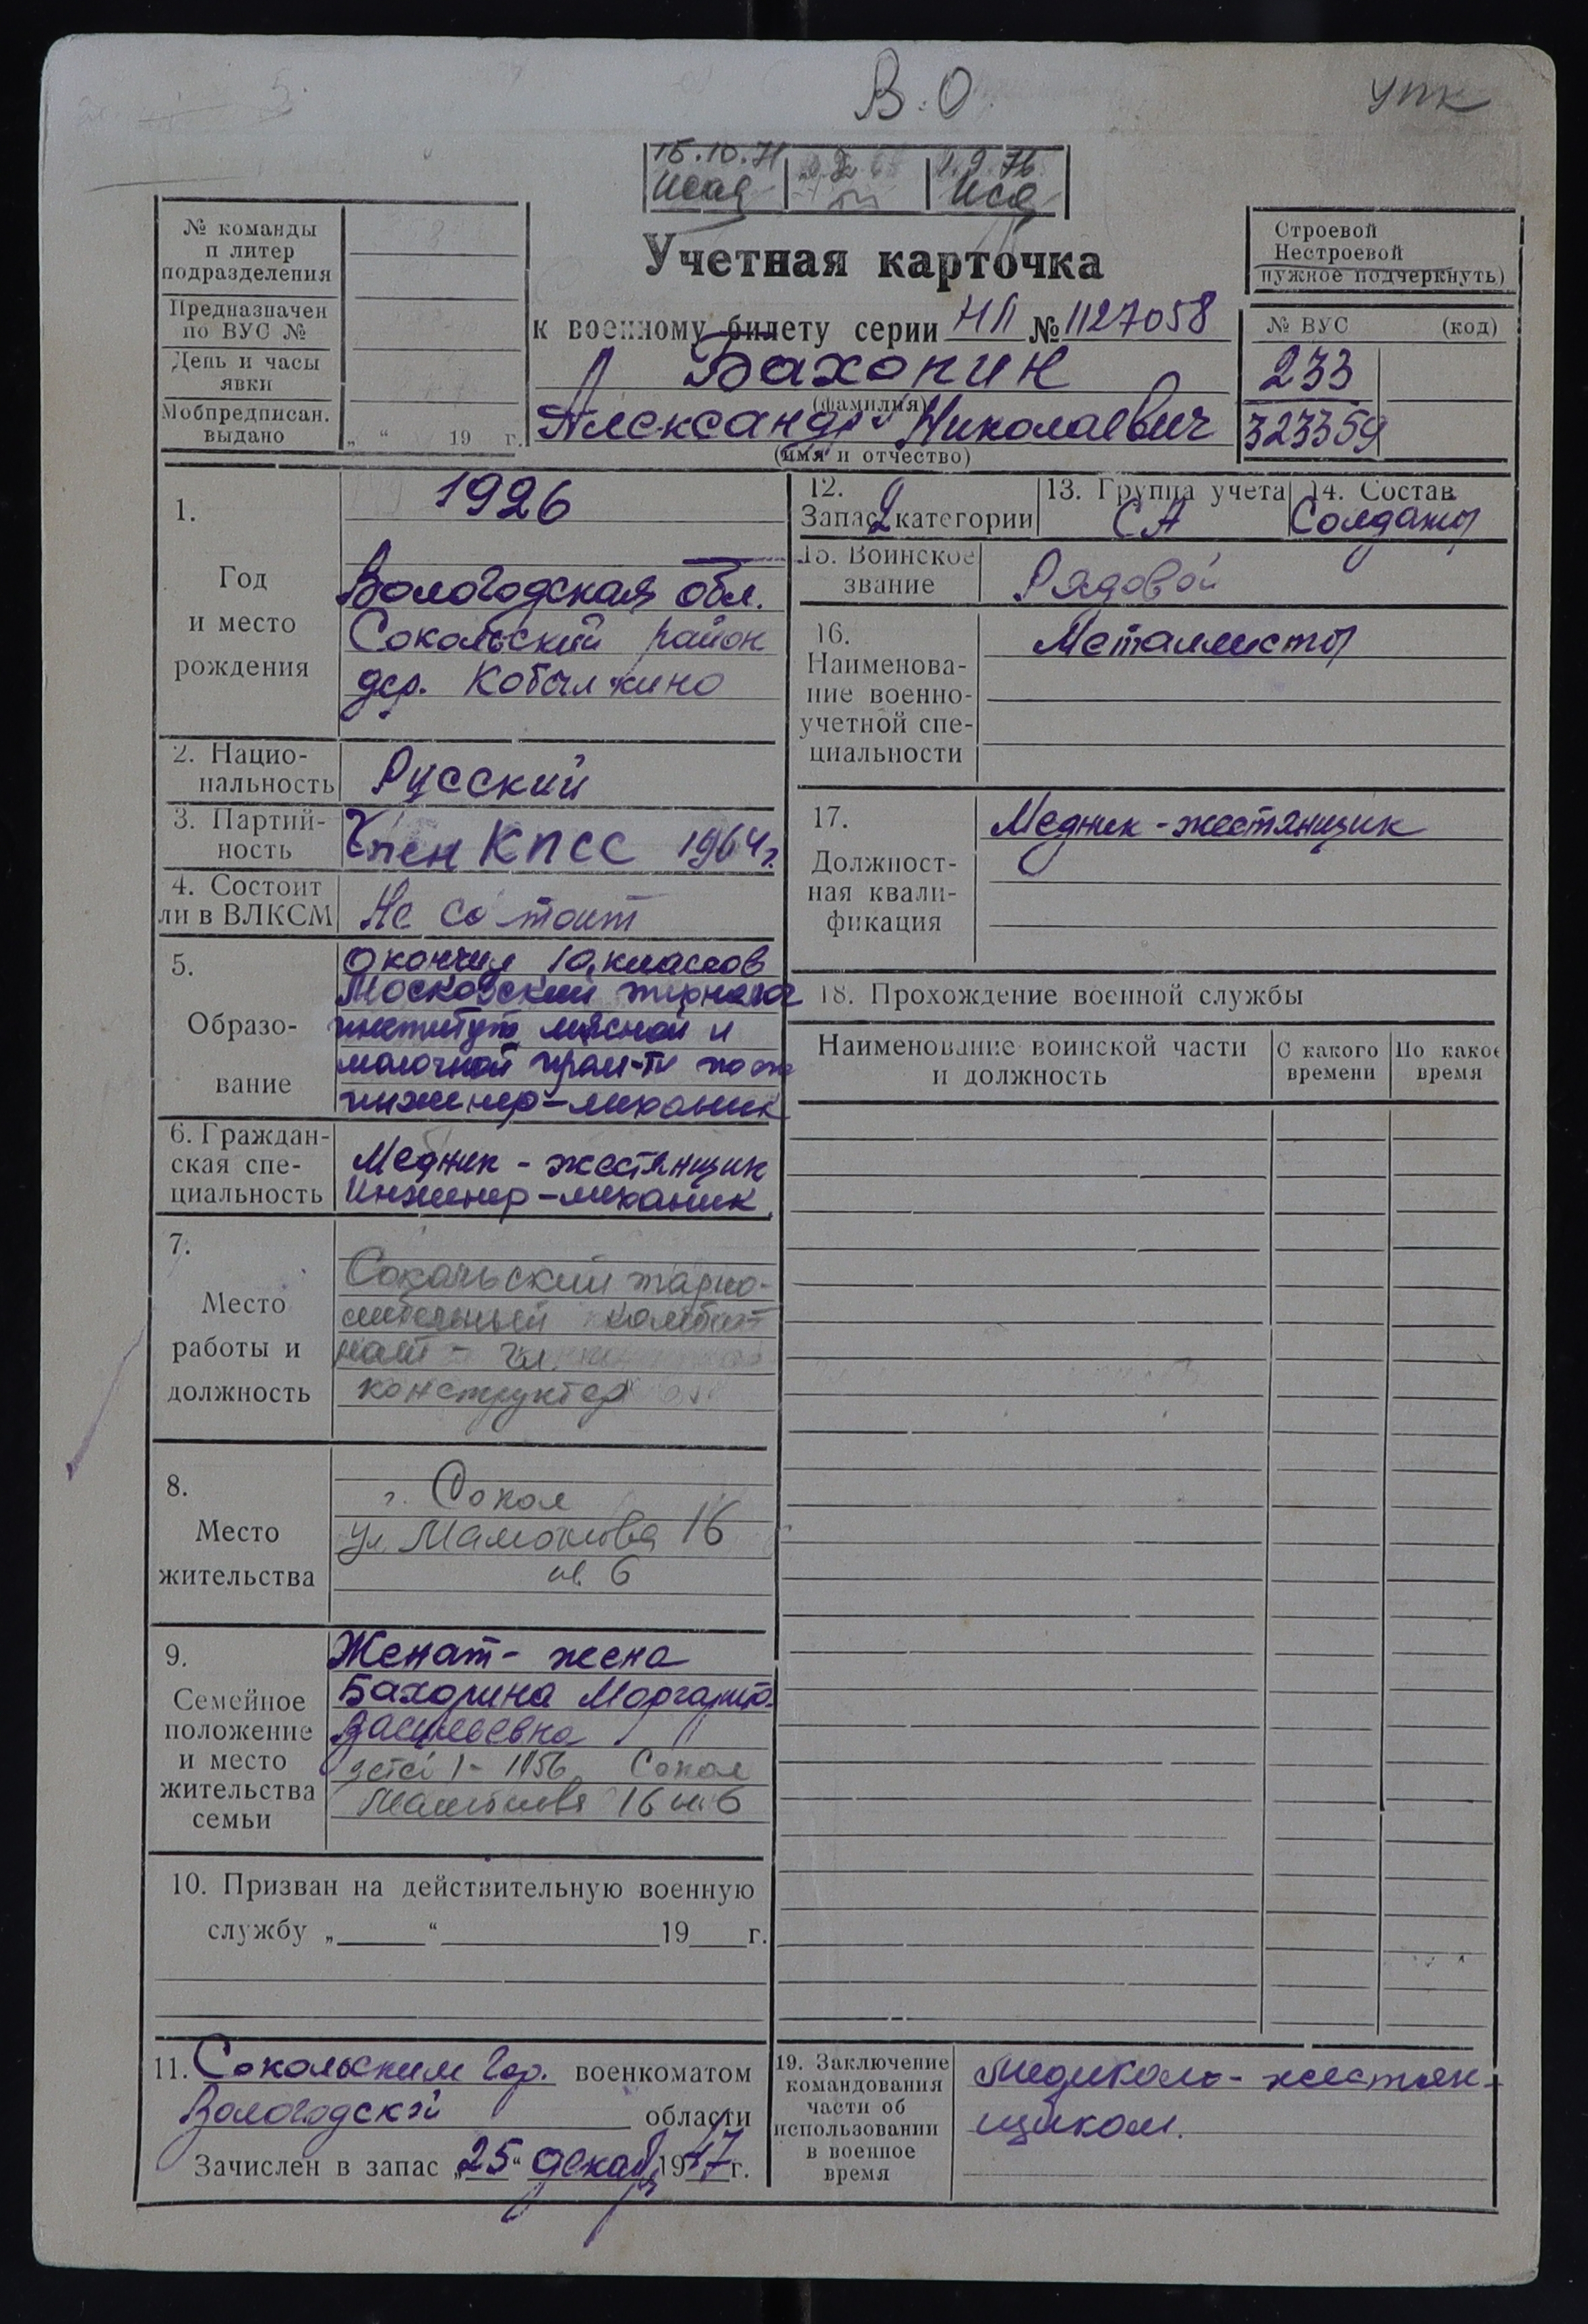 В.О.
УПК
15.10.71
1.9.76
№ команды
и литер
подразделения
Предназначен
по ВУС №
День и часы
явки
Мобпредписан.
выдано „ “ 19 г.
Учетная карточка
к военному билету серии НП № 1127058
Бахорин
(фамилия)
Александр Николаевич
(имя и отчество)
Строевой
Нестроевой
нужное подчеркнуть)
№ ВУС (код)
233
323359
1.
Год
и место
рождения
1926
Вологодская обл.
Сокольский район
дер. Кобылкино
2. Нацио-
нальность
Русский
3. Партий-
ность
Член КПСС 1964 г.
4. Состоит
ли в ВЛКСМ
Не состоит
5.
Образо-
вание
Окончил 10 классов
Московский
институт мясной и
молочной пром-ти
инженер-механик
6. Граждан-
ская спе-
циальность
Медник - жестянщик
Инженер-механик
7.
Место
работы и
должность
Сокольский тарно-
мебельный комби-
нат - гл.
конструктор
8.
Место
жительства
г. Сокол
ул. Мамонова 16
кв 6
9.
Семейное
положение
и место
жительства
семьи
Женат - жена
Бахорина Маргарита
Васильевна
детей 1 - 1956 Сокол
Мамонова 16 кв 6
10. Призван на действительную военную
службу „ “ 19 г.
11. Сокольским Гор. военкоматом
Вологодской области
Зачислен в запас „25“ декабр 1947 г.
12.
Запас 2 категории
13. Группа учета
СА
14. Состав
Солдаты
15. Воинское
звание
Рядовой
16.
Наименова-
ние военно-
учетной спе-
циальности
Металлисты
17.
Должност-
ная квали-
фикация
Медник - жестянщик
18. Прохождение военной службы
Наименование воинской части
и должность
С какого
времени
По какое
время
19. Заключение
командования
части об
использовании
в военное
время
Медиком - жестян-
щиком.